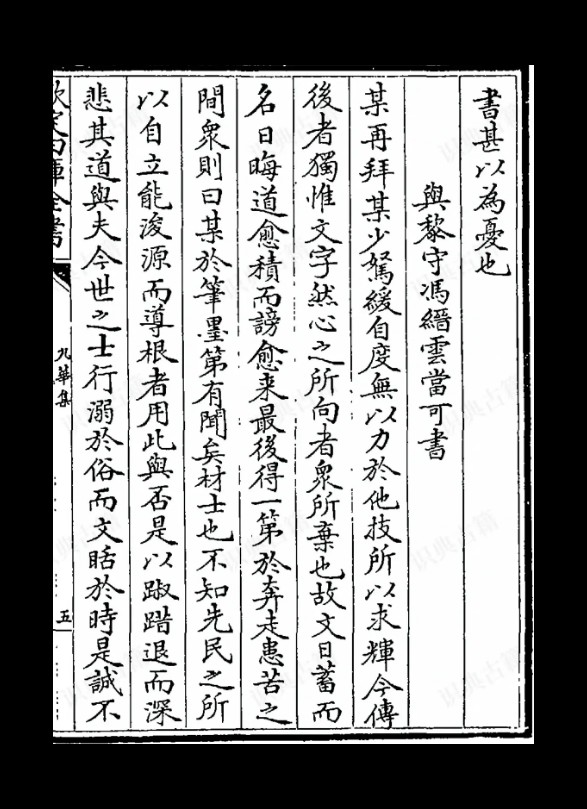 書甚以為憂也
與黎守馮縉雲當可書
某再拜某少駑緩自度無以力於他技所以求輝今傳
後者獨惟文字然心之所向者衆所棄也故文日蓄而
名日晦道愈積而謗愈来最後得一第於奔走患苦之
間衆則曰某於筆墨第有聞矣材士也不知先民之所
以自立能浚源而導根者用此與否是以踧踖退而深
悲其道與夫今世之士行溺於俗而文聒於時是誠不
欽定四庫全書
九華集
五